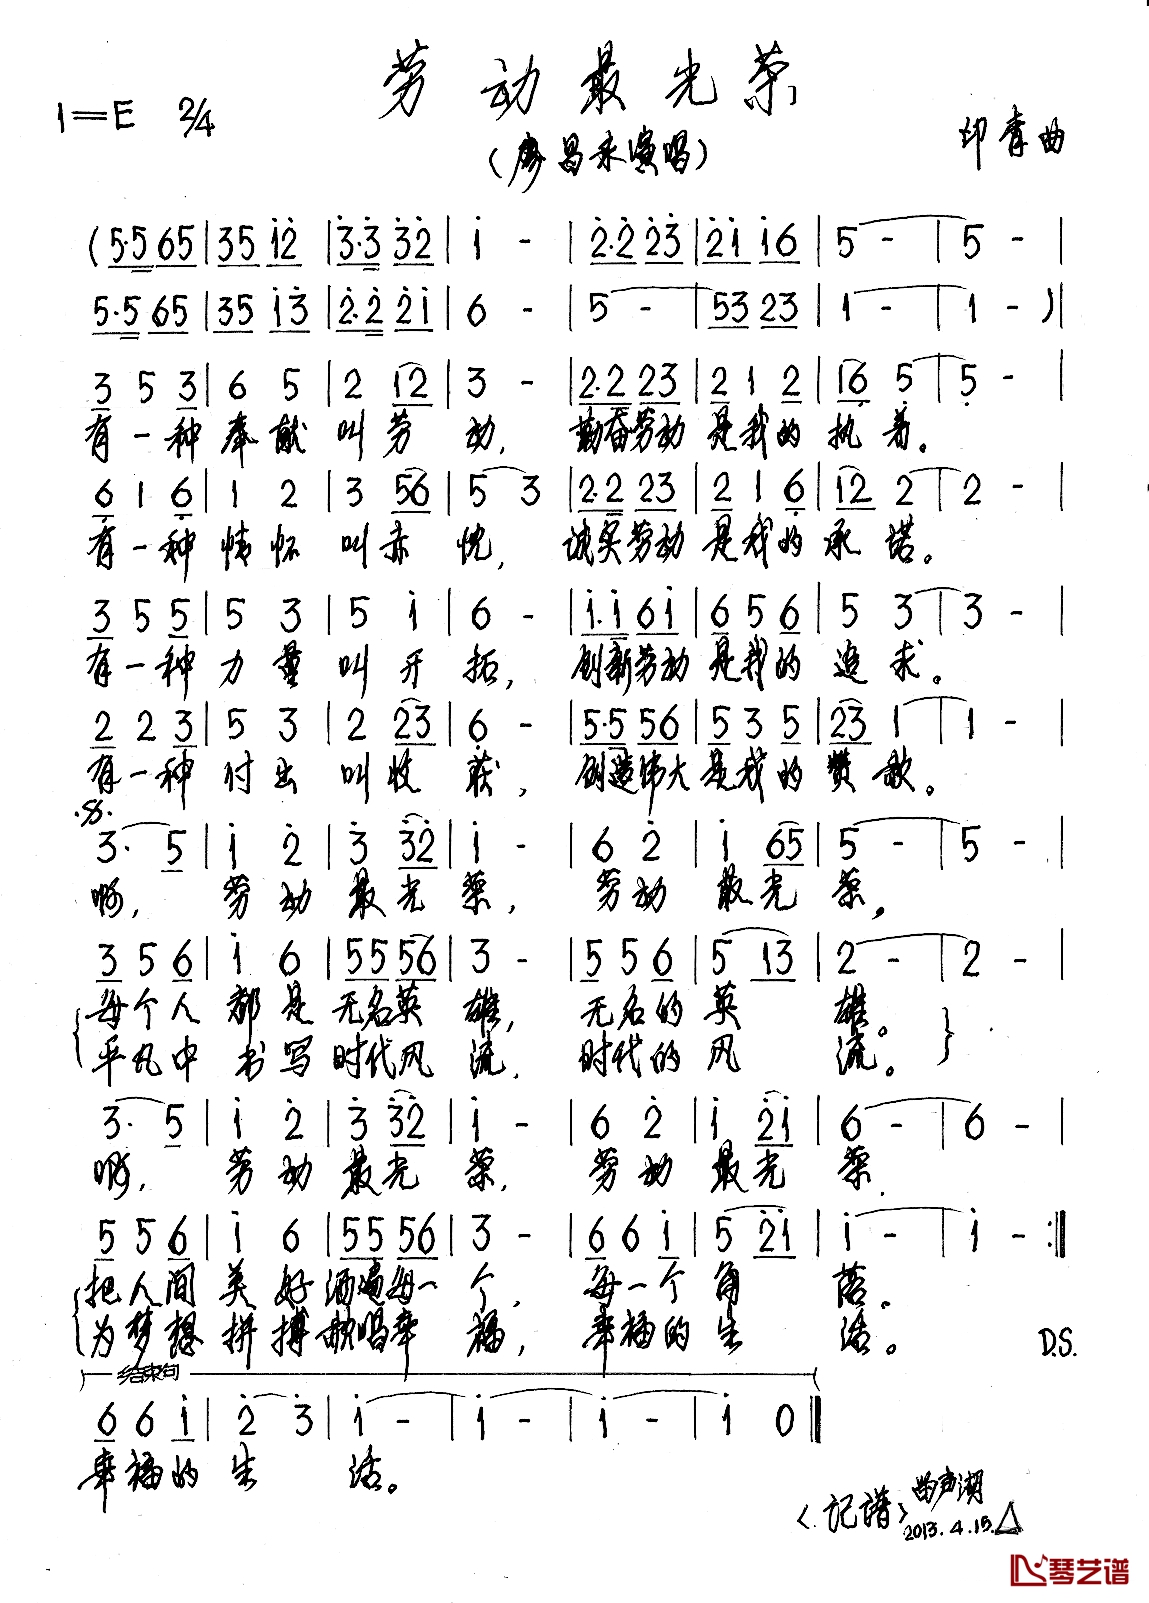 劳动最光荣
1=E 2/4
(廖昌永演唱)
印青曲
(5·5 65|35 1̇2̇|3̇·3̇ 3̇2̇|1̇ -|2̇·2̇ 2̇3̇|2̇1̇ 1̇6|5 -|5 -|
5·5 65|35 1̇3̇|2̇·2̇ 2̇1̇|6 -|5 -|53 23|1 -|1 -)|
3 5 3|6 5|2 12|3 -|2·2 23|2 1 2|16̣ 5̣|5̣ -|
有一种奉献叫劳动,勤奋劳动是我的执着。
6̣ 1 6̣|1 2|3 56|5 3|2·2 23|2 1 6̣|12 2|2 -|
有一种情怀叫赤忱,诚实劳动是我的承诺。
3 5 5|5 3|5 1̇|6 -|1̇·1̇ 61̇|6 5 6|5 3|3 -|
有一种力量叫开拓,创新劳动是我的追求。
2 2 3|5 3|2 23|6̣ -|5·5 56|5 3 5|23 1|1 -|
有一种付出叫收获,创造伟大是我的赞歌。
3· 5|1̇ 2̇|3̇ 3̇2̇|1̇ -|6 2̇|1̇ 65|5 -|5 -|
啊,劳动最光荣,劳动最光荣,
3 5 6|1̇ 6|55 56|3 -|5 5 6|5 13|2 -|2 -|
每个人都是无名英雄,无名的英雄。
平凡中书写时代风流,时代的风流。
3· 5|1̇ 2̇|3̇ 3̇2̇|1̇ -|6 2̇|1̇ 2̇1̇|6 -|6 -|
啊,劳动最光荣,劳动最光荣,
5 5 6|1̇ 6|55 56|3 -|6 6 1̇|5 2̇1̇|1̇ -|1̇ -:‖
把人间美好洒遍每一个,每一个角落。
为梦想拼搏歌唱幸福,幸福的生活。 D.S.
结束句
6 6 1̇|2̇ 3̇|1̇ -|1̇ -|1̇ -|1̇ 0‖
幸福的生活。
〈记谱〉曲声湖
2013.4.15.
琴艺谱